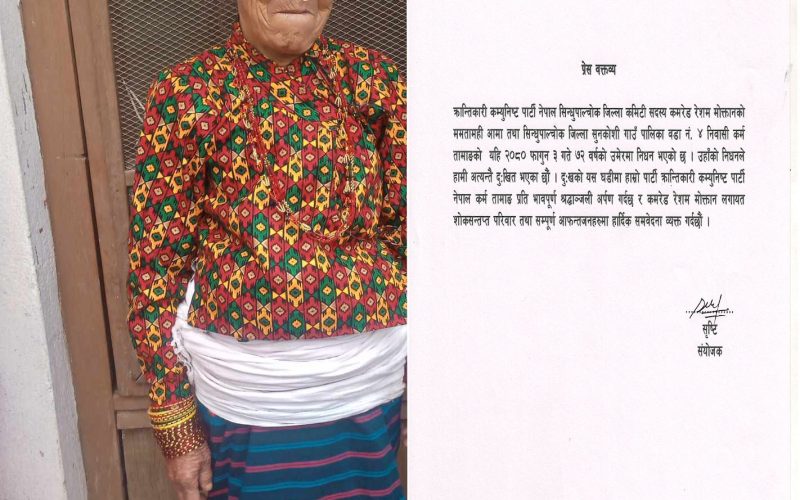 प्रेस वक्तव्य
क्रान्तिकारी कम्युनिष्ट पार्टी नेपाल सिन्धुपाल्चोक जिल्ला कमिटी सदस्य कमरेड रेशम मोक्तानको
ममतामही आमा तथा सिन्धुपाल्चोक जिल्ला सुनकोशी गाउँ पालिका वडा नं. ४ निवासी कर्म
तामाङको यहि २०८० फागुन ३ गते ७२ वर्षको उमेरमा निधन भएको छ । उहाँको निधनले
हामी अत्यन्तै दुःखित भएका छौं । दुःखको यस घडीमा हाम्रो पार्टी क्रान्तिकारी कम्युनिष्ट पार्टी
नेपाल कर्म तामाङ प्रति भावपूर्ण श्रद्धाञ्जली अर्पण गर्दछ र कमरेड रेशम मोक्तान लगायत
शोकसन्तप्त परिवार तथा सम्पूर्ण आफन्तजनहरुमा हार्दिक समवेदना व्यक्त गर्दछौं ।
सृष्टि
संयोजक